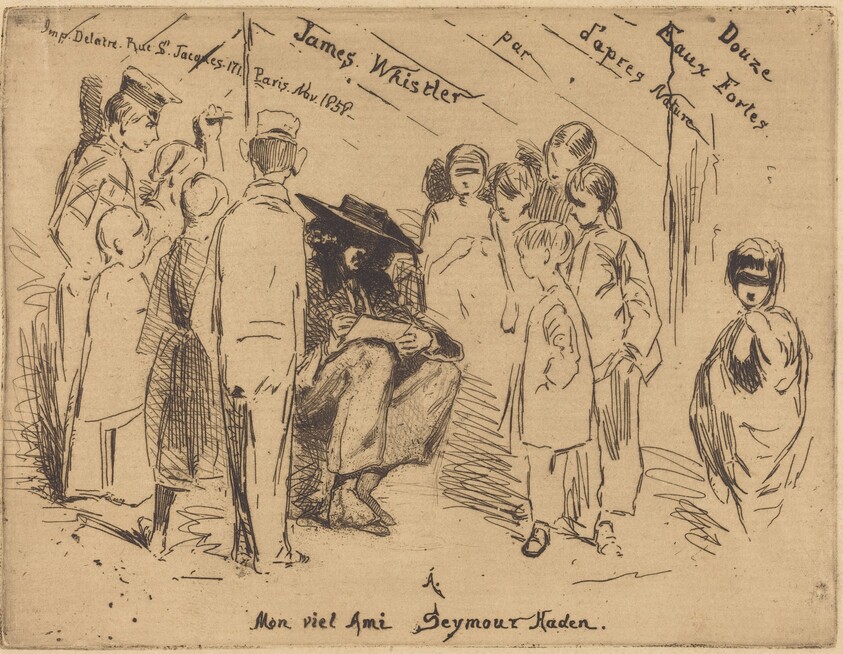 Douze
Eaux Fortes
d'apres Nature
par
James Whistler
Imp. Delatre. Rue St. Jacques. 171.
Paris. Nov. 1858-
Á.
Mon viel Ami Seymour Haden.